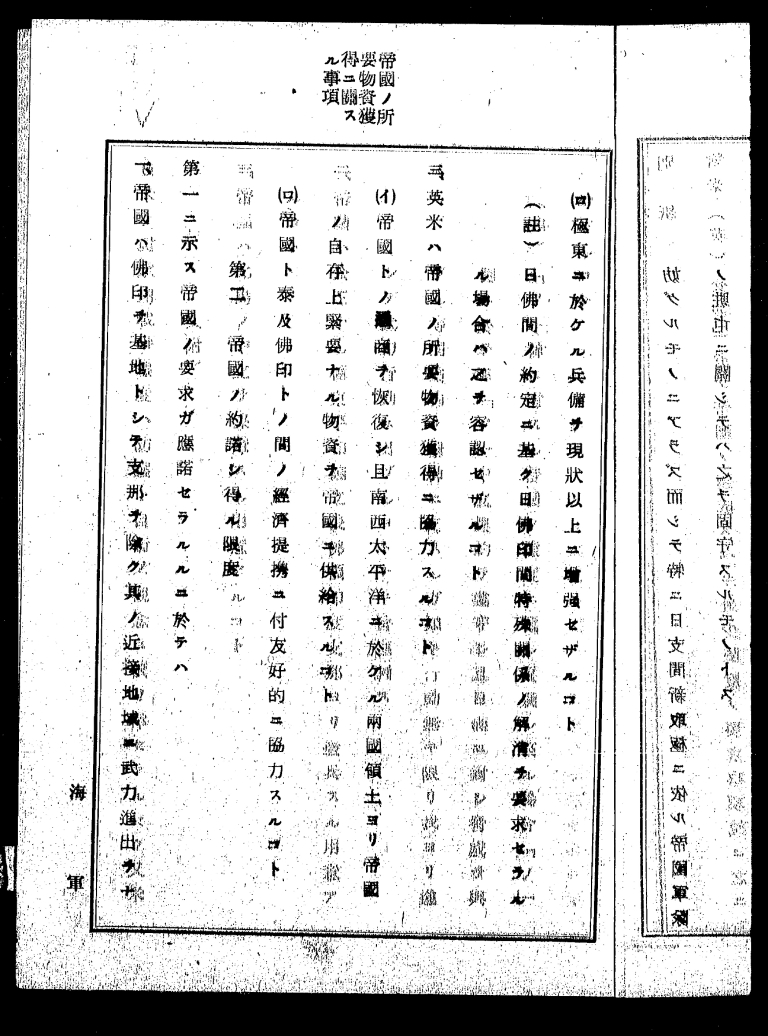 ノ駐屯ニ關シテハ之ヲ固守スルモノトス
妨グルモノニアラズ而シテ特ニ日支間新取極ニ依ル帝國軍隊
帝國ノ所
要物資獲
得ニ關ス
ル事項
(ロ)極東ニ於ケル兵備ヲ現狀以上ニ増强セザルコト
(註)日佛間ノ約定ニ基ク日佛印間特殊關係ノ解消ヲ要求セラル
ル場合ハ之ヲ容認セザルコト
三、英米ハ帝國ノ所要物資獲得ニ協力スルコト
(イ)帝國トノ通商ヲ恢復シ且南西太平洋ニ於ケル兩國領土ヨリ帝國
ノ自存上緊要ナル物資ヲ帝國ニ供給スルコト
(ロ)帝國ト泰及佛印トノ間ノ經濟提携ニ付友好的ニ協力スルコト
第二、帝國ノ約諾シ得ル限度
第一ニ示ス帝國ノ要求ガ應諾セラルルニ於テハ
一、帝國ハ佛印ヲ基地トシテ支那ヲ除ク其ノ近接地域ニ武力進出ヲナ
海軍